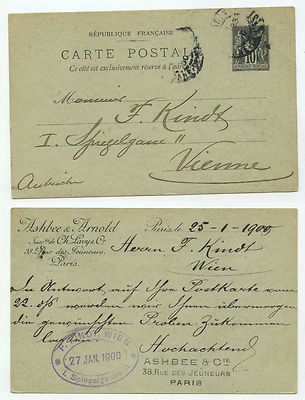 RÉPUBLIQUE FRANÇAISE
CARTE POSTALE
Ce côté est exclusivement réservé à l'adresse
10
Monsieur
F. Kindt
I. Spiegelgasse 11
Vienne
Autriche
Ashbee & Arnold
Succrs. de Ch. Lavy & Co
38, Rue des Jeuneurs,
Paris.
Paris, le 25-1-1900
Herrn F. Kindt
Wien
In Antwort auf Ihre Postkarte vom
22. dss werden wir Ihnen übermorgen
die gewünschten Proben zukommen
lassen.
Hochachtend
ASHBEE & CIE
38, RUE DES JEUNEURS
PARIS
F. KINDT, WIEN
27 JAN. 1900
I., Spiegelgasse 11